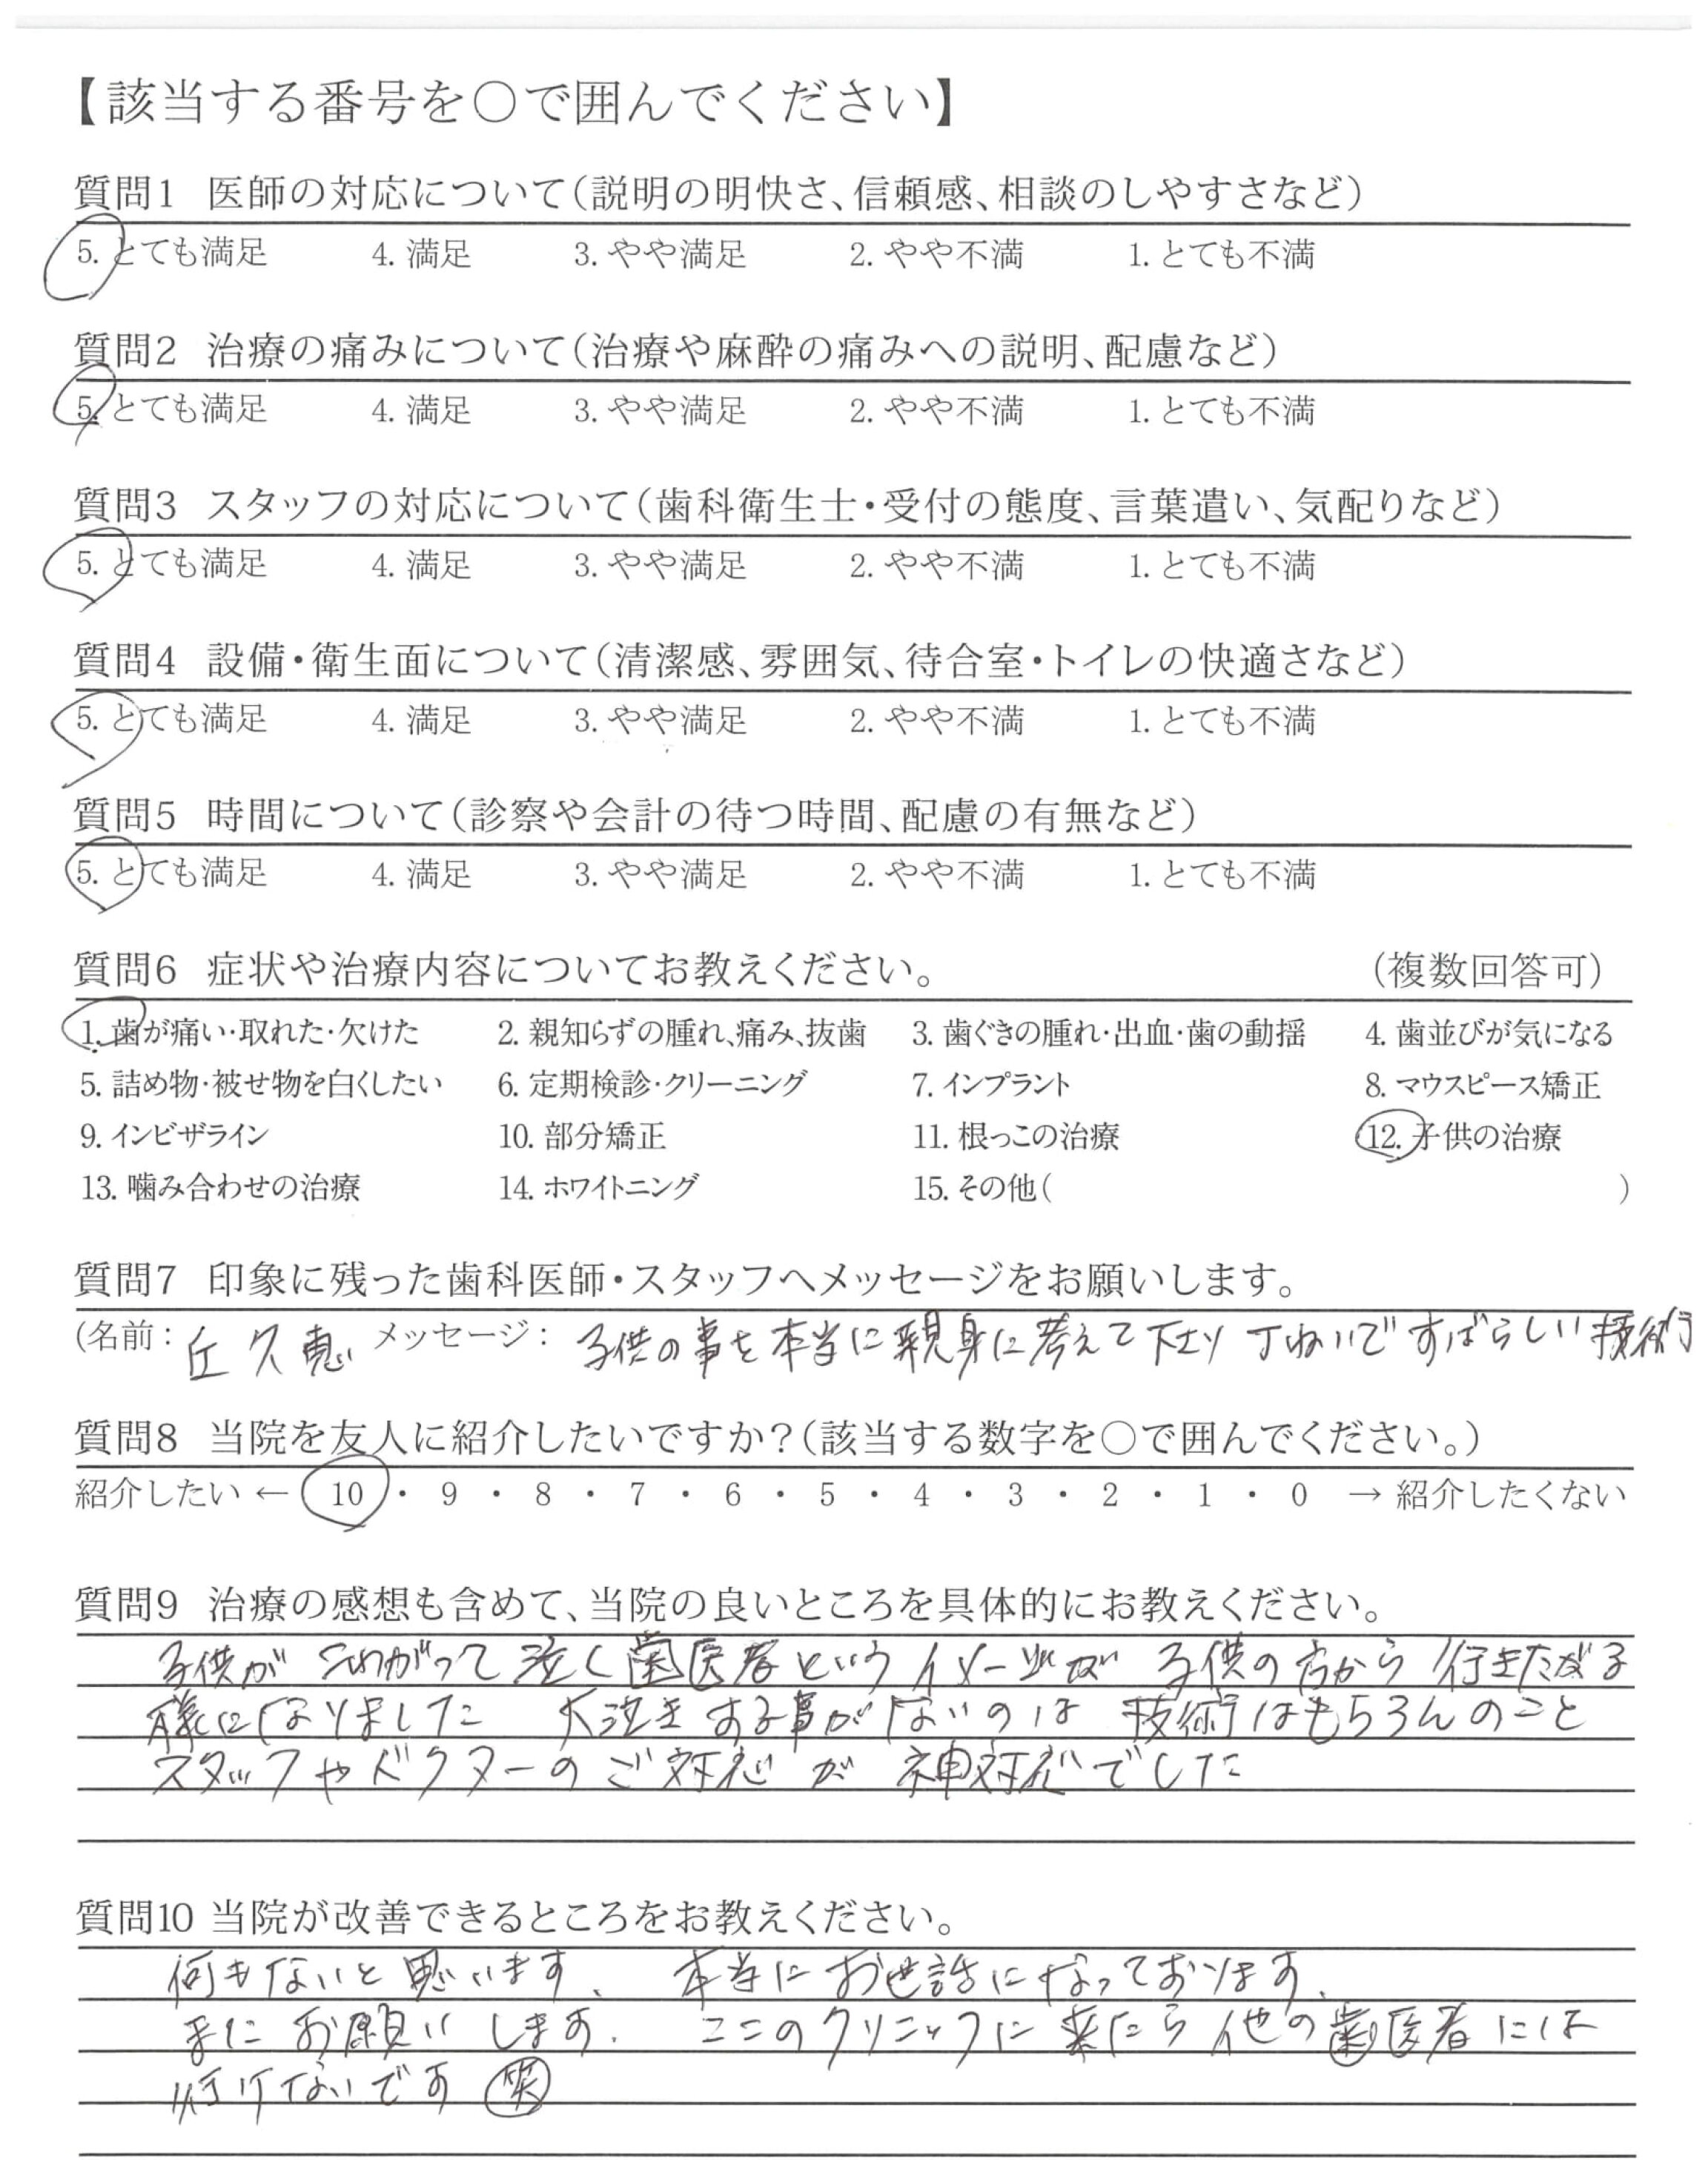 【該当する番号を〇で囲んでください】
質問1 医師の対応について(説明の明快さ、信頼感、相談のしやすさなど)
5. とても満足 4. 満足 3. やや満足 2. やや不満 1. とても不満
質問2 治療の痛みについて(治療や麻酔の痛みへの説明、配慮など)
5. とても満足 4. 満足 3. やや満足 2. やや不満 1. とても不満
質問3 スタッフの対応について(歯科衛生士・受付の態度、言葉遣い、気配りなど)
5. とても満足 4. 満足 3. やや満足 2. やや不満 1. とても不満
質問4 設備・衛生面について(清潔感、雰囲気、待合室・トイレの快適さなど)
5. とても満足 4. 満足 3. やや満足 2. やや不満 1. とても不満
質問5 時間について(診察や会計の待つ時間、配慮の有無など)
5. とても満足 4. 満足 3. やや満足 2. やや不満 1. とても不満
質問6 症状や治療内容についてお教えください。 (複数回答可)
1. 歯が痛い・取れた・欠けた 2. 親知らずの腫れ、痛み、抜歯 3. 歯ぐきの腫れ・出血・歯の動揺 4. 歯並びが気になる
5. 詰め物・被せ物を白くしたい 6. 定期検診・クリーニング 7. インプラント 8. マウスピース矯正
9. インビザライン 10. 部分矯正 11. 根っこの治療 12. 子供の治療
13. 噛み合わせの治療 14. ホワイトニング 15. その他( )
質問7 印象に残った歯科医師・スタッフへメッセージをお願いします。
(名前: 丘 久恵 メッセージ: 子供の事を本当に親身に考えて下さり ていねいで すばらしい 技術
質問8 当院を友人に紹介したいですか?(該当する数字を〇で囲んでください。)
紹介したい ← 10 ・ 9 ・ 8 ・ 7 ・ 6 ・ 5 ・ 4 ・ 3 ・ 2 ・ 1 ・ 0 → 紹介したくない
質問9 治療の感想も含めて、当院の良いところを具体的にお教えください。
子供が こわがって 泣く 歯医者 という イメージが 子供の方から 行きたがる
様になりました 大泣き する事が ないのは 技術はもちろんのこと
スタッフやドクターの ご対応 が 神対応でした
質問10 当院が改善できるところをお教えください。
何もないと思います、 本当に お世話になっております、
またお願いします. ここのクリニックに来たら 他の歯医者には
行けないです 笑